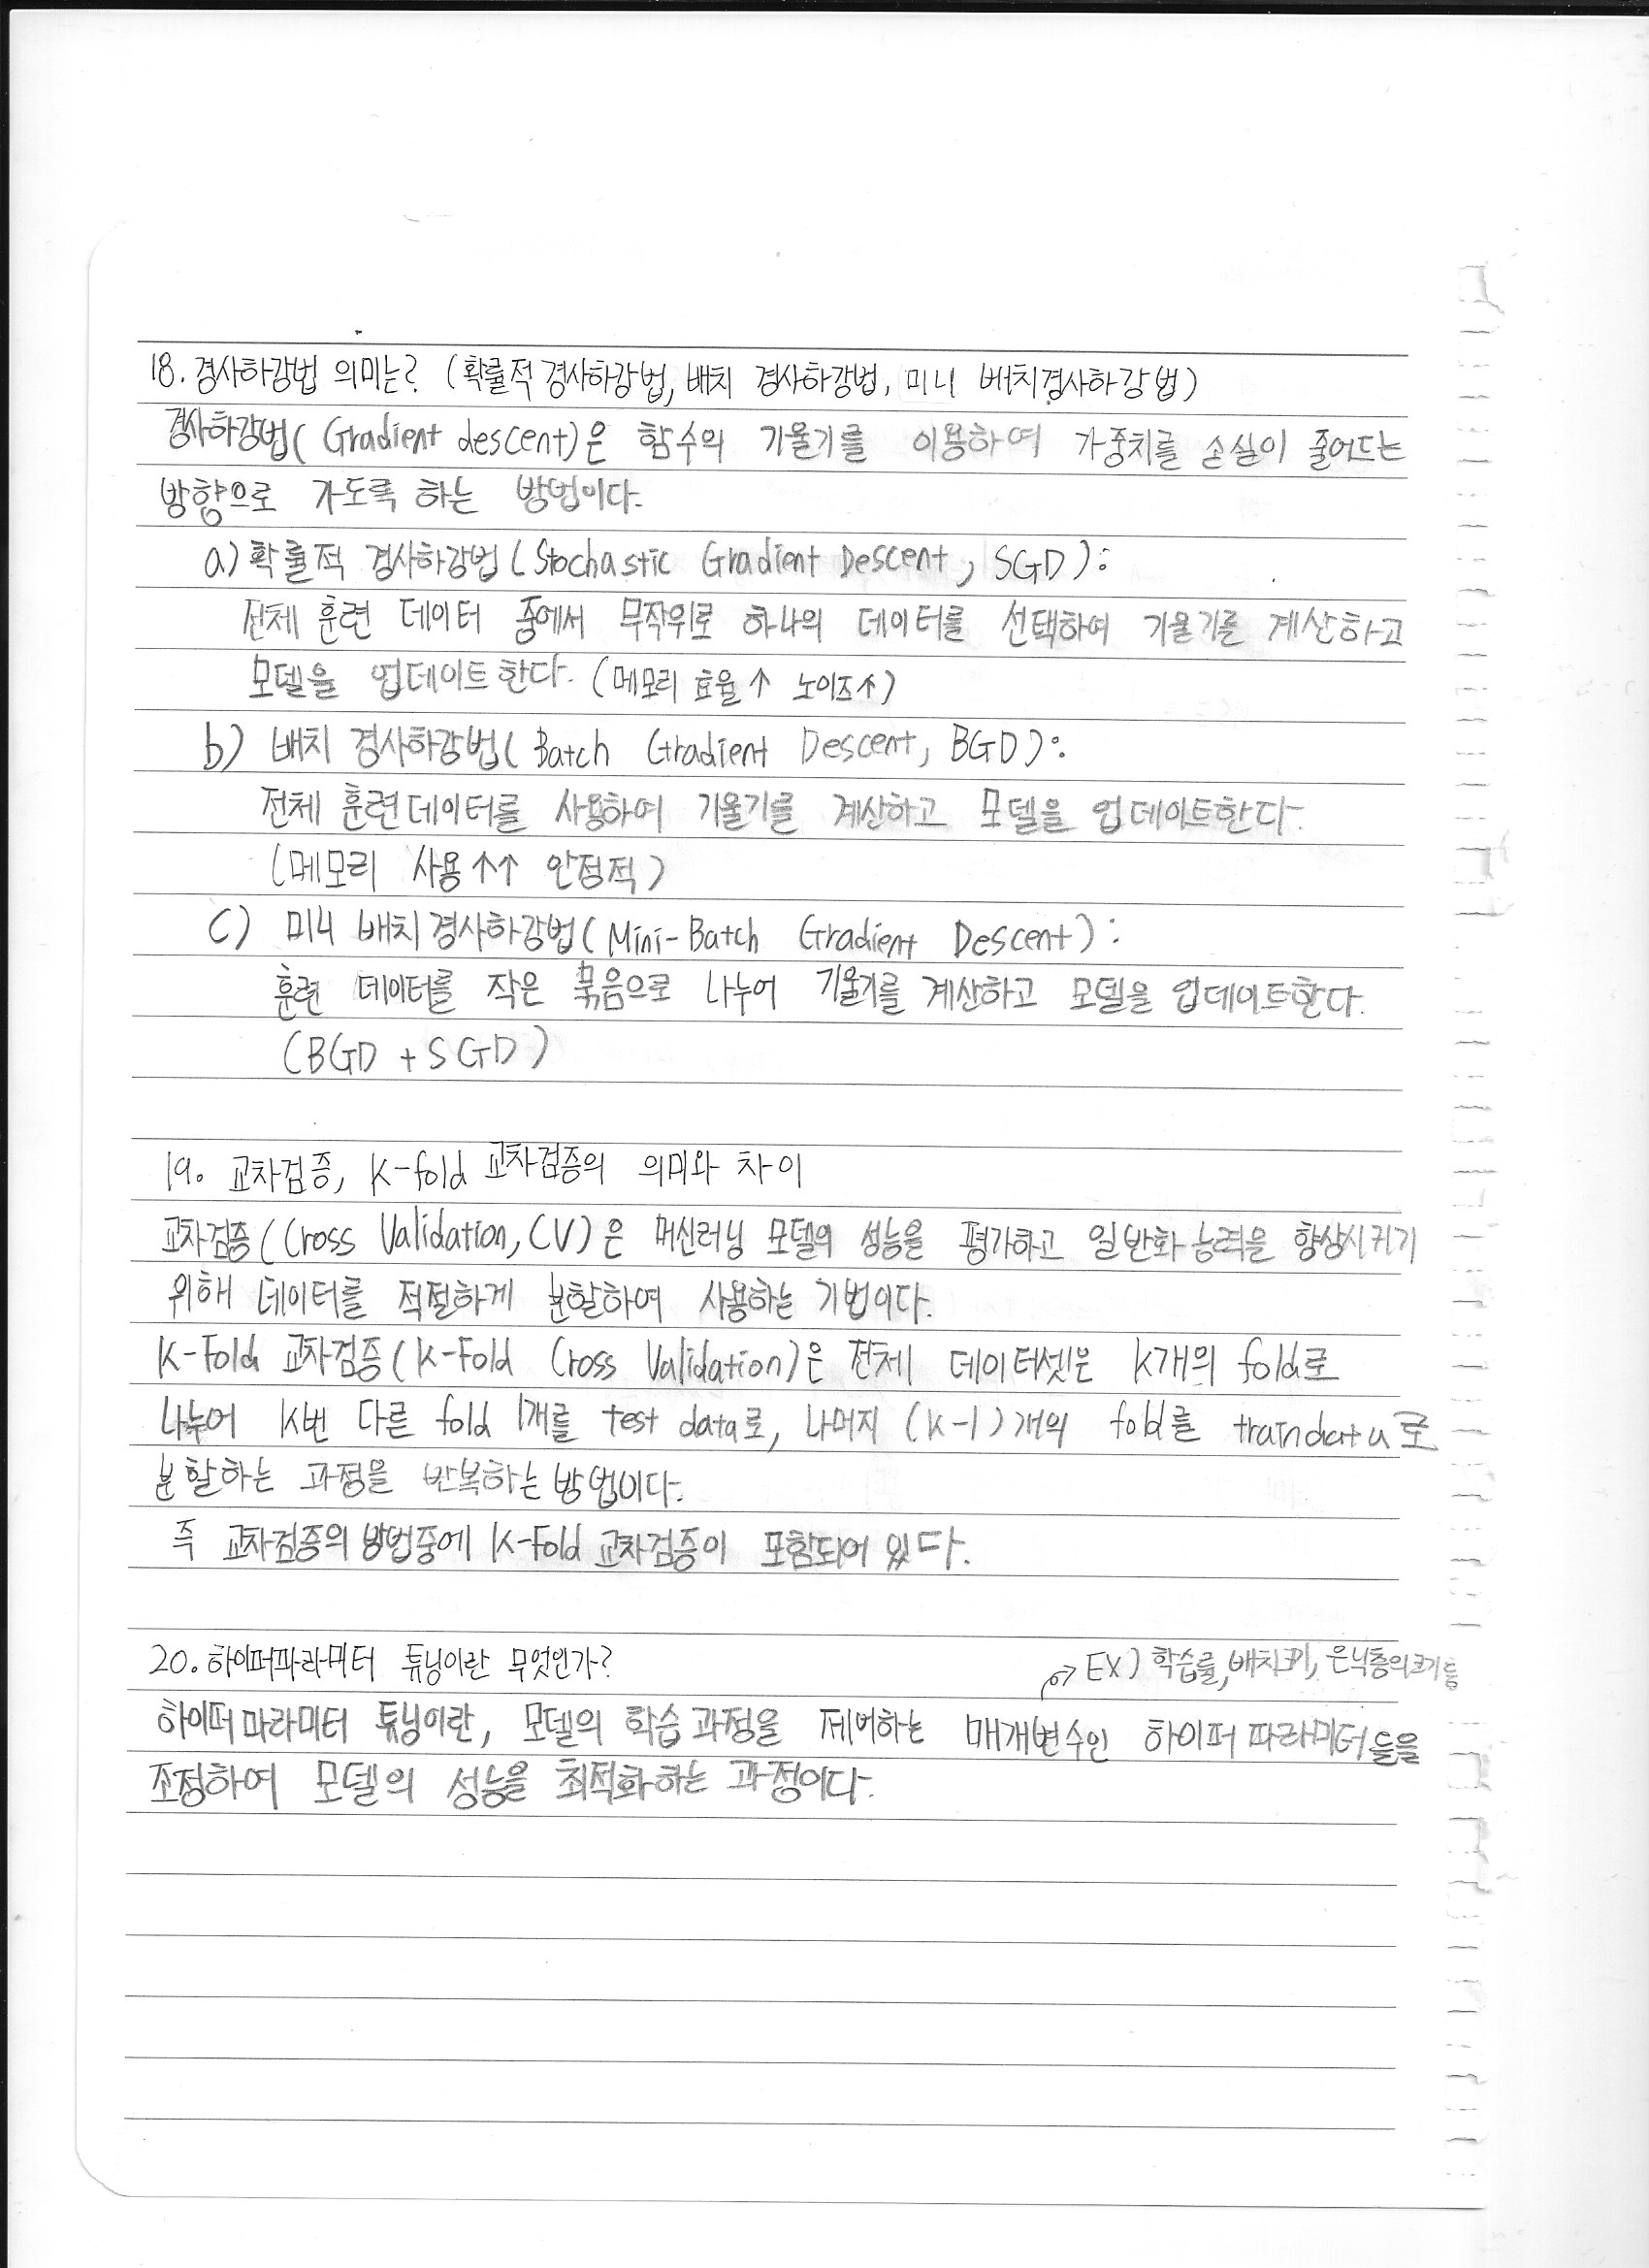 18. 경사하강법 의미는? (확률적 경사하강법, 배치 경사하강법, 미니 배치경사하강법)
경사하강법(Gradient descent)은 함수의 기울기를 이용하여 가중치를 손실이 줄어드는
방향으로 가도록 하는 방법이다.
a) 확률적 경사하강법 (Stochastic Gradient Descent, SGD):
전체 훈련 데이터 중에서 무작위로 하나의 데이터를 선택하여 기울기를 계산하고
모델을 업데이트한다. (메모리 효율↑ 노이즈↑)
b) 배치 경사하강법(Batch Gradient Descent, BGD):
전체 훈련데이터를 사용하여 기울기를 계산하고 모델을 업데이트한다.
(메모리 사용↑↑ 안정적)
c) 미니 배치 경사하강법(Mini-Batch Gradient Descent):
훈련 데이터를 작은 묶음으로 나누어 기울기를 계산하고 모델을 업데이트한다.
(BGD + SGD)
19. 교차검증, K-fold 교차검증의 의미와 차이
교차검증(Cross Validation, CV)은 머신러닝 모델의 성능을 평가하고 일반화 능력을 향상시키기
위해 데이터를 적절하게 분할하여 사용하는 기법이다.
K-Fold 교차검증(K-Fold Cross Validation)은 전체 데이터셋은 K개의 fold로
나누어 K번 다른 fold 1개를 test data로, 나머지 (K-1)개의 fold를 train data로
분할하는 과정을 반복하는 방법이다.
즉 교차검증의 방법중에 K-Fold 교차검증이 포함되어 있다.
20. 하이퍼파라미터 튜닝이란 무엇인가?
→ EX) 학습률, 배치크기, 은닉층의크기등
하이퍼파라미터 튜닝이란, 모델의 학습 과정을 제어하는 매개변수인 하이퍼 파라미터들을
조정하여 모델의 성능을 최적화하는 과정이다.